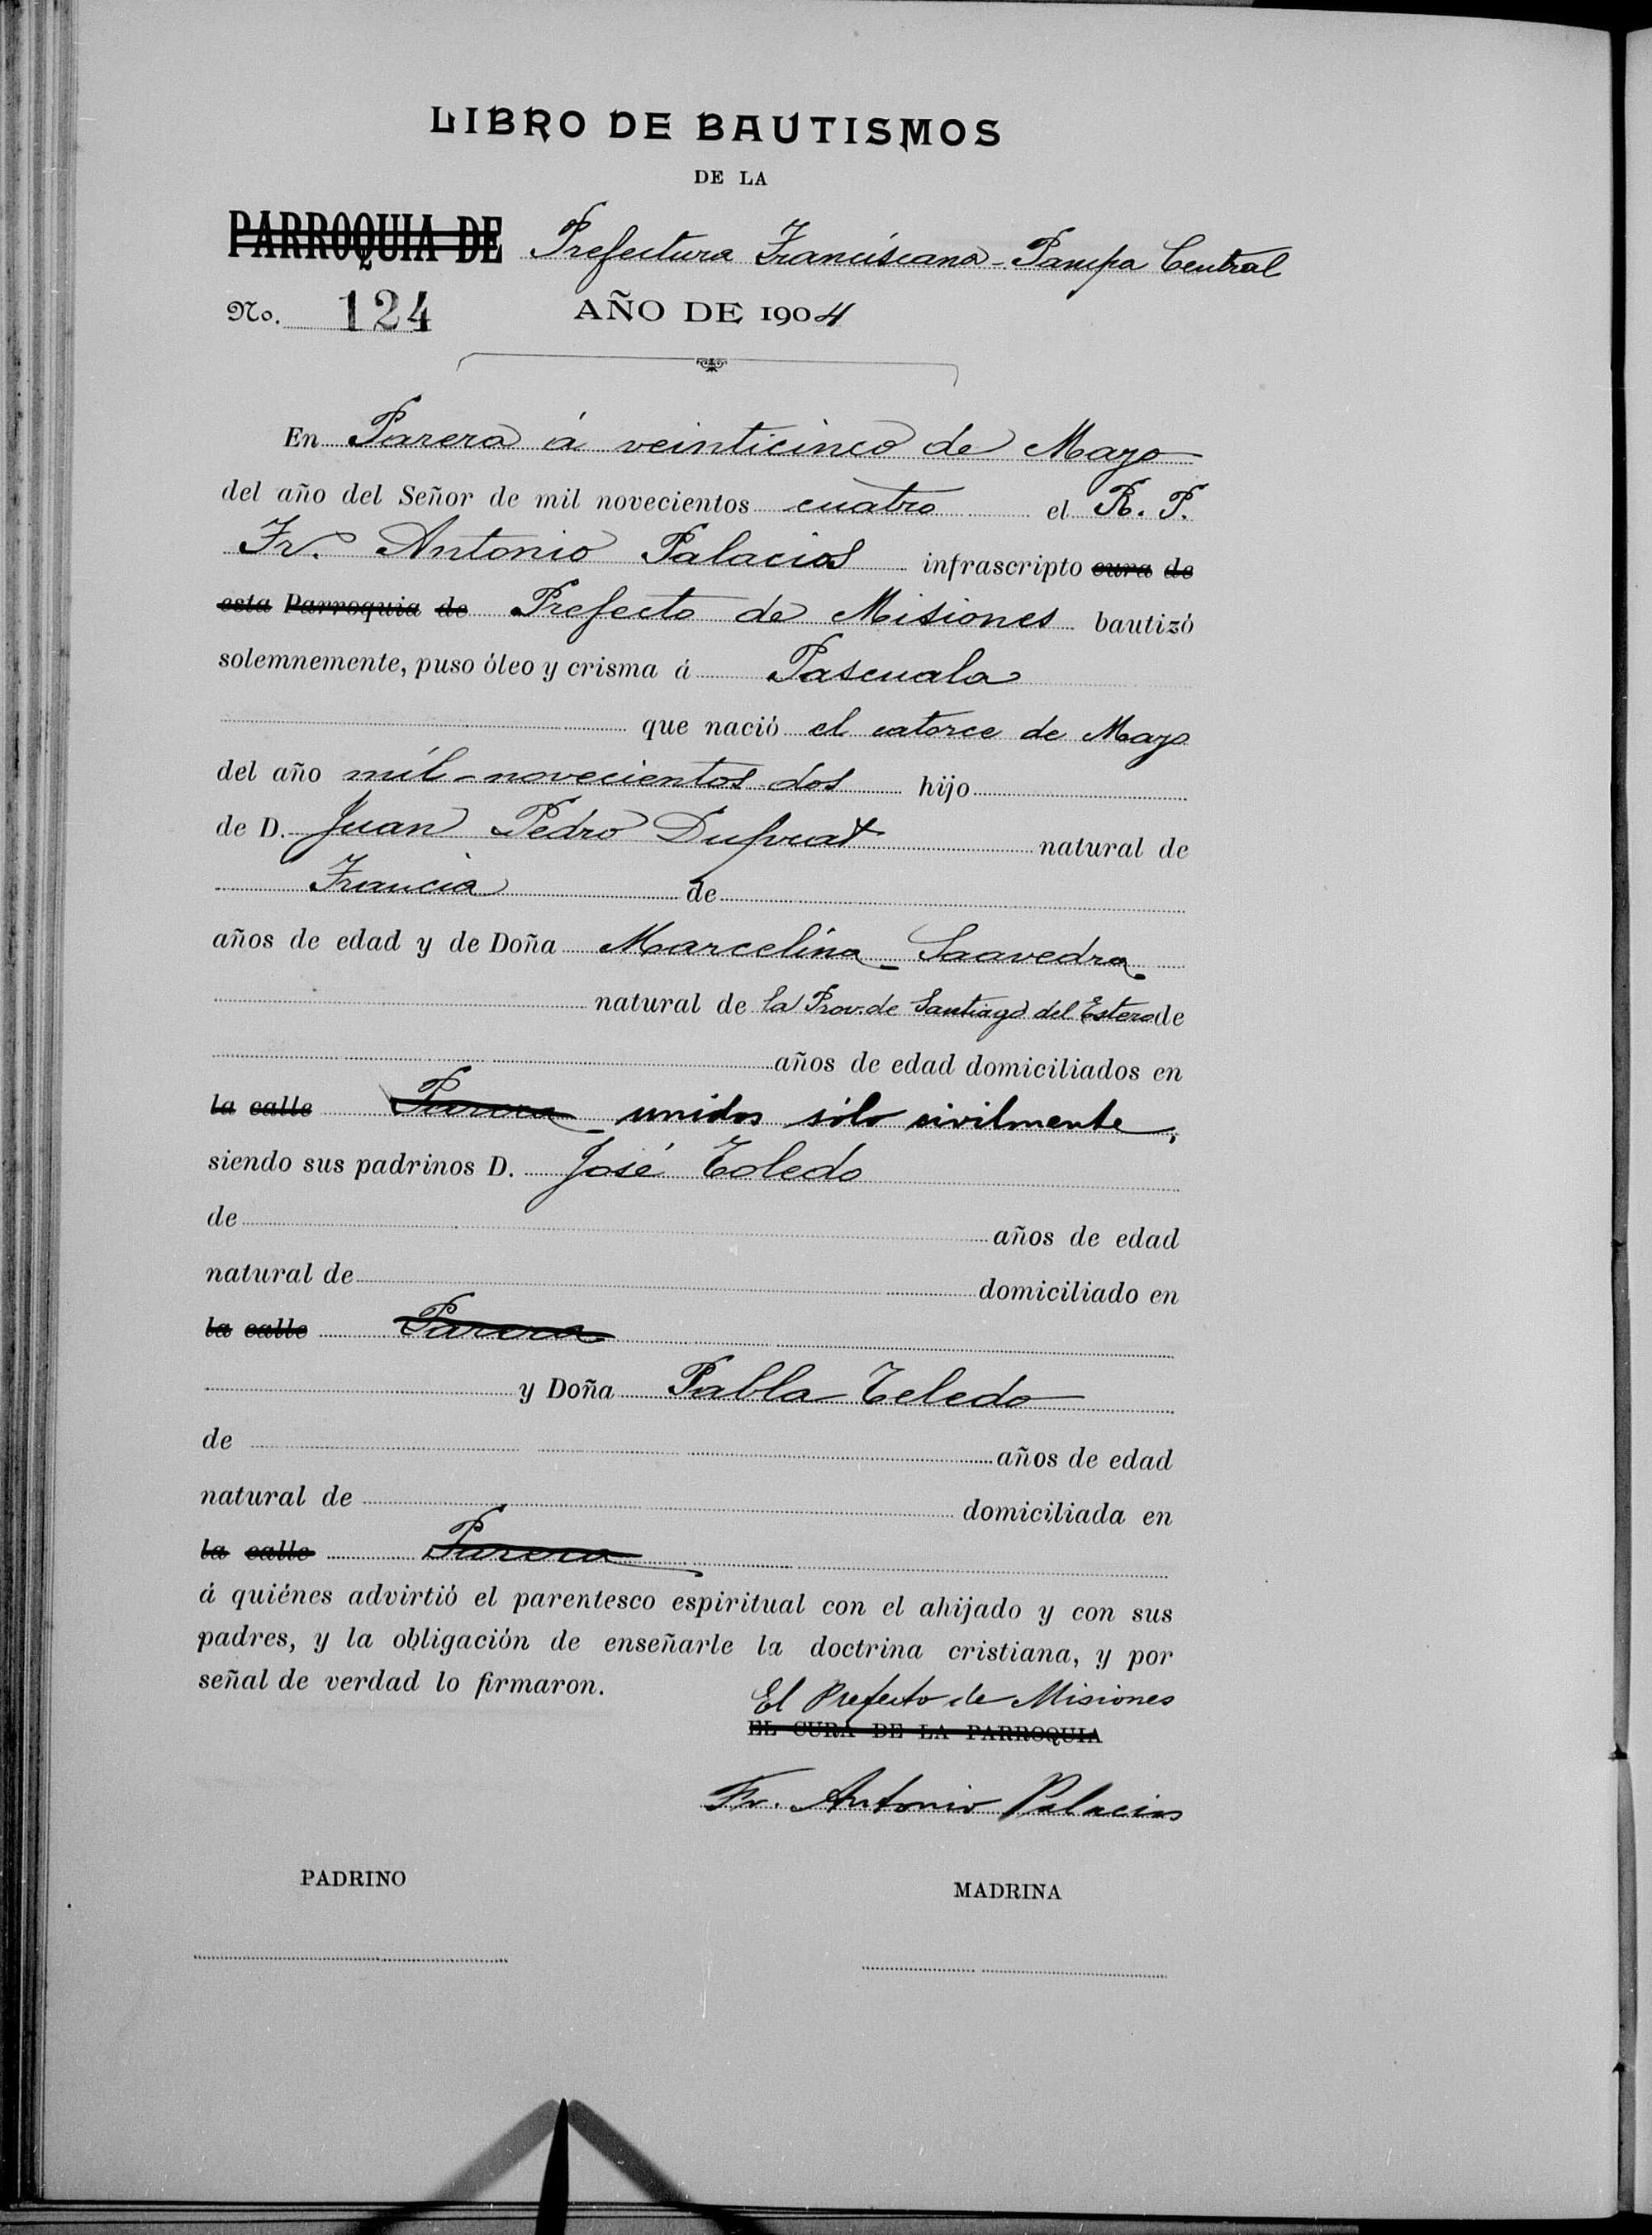 LIBRO DE BAUTISMOS
DE LA
PARROQUIA DE Prefectura Franciscana - Pampa Central
No. 124 AÑO DE 1904
En Parera á veinticinco de Mayo
del año del Señor de mil novecientos cuatro el R. P.
Fr. Antonio Palacios infrascripto cura de
esta Parroquia de Prefecto de Misiones bautizó
solemnemente, puso óleo y crisma á Pascuala
que nació el catorce de Mayo
del año mil-novecientos dos hijo
de D. Juan Pedro Duprat natural de
Francia de
años de edad y de Doña Marcelina Saavedra
natural de la Prov. de Santiago del Estero de
años de edad domiciliados en
la calle Parera unidos sólo civilmente,
siendo sus padrinos D. José Toledo
de años de edad
natural de domiciliado en
la calle Parera
y Doña Pabla Teledo
de años de edad
natural de domiciliada en
la calle Parera
á quiénes advirtió el parentesco espiritual con el ahijado y con sus
padres, y la obligación de enseñarle la doctrina cristiana, y por
señal de verdad lo firmaron.
El Prefecto de Misiones
EL CURA DE LA PARROQUIA
Fr. Antonio Palacios
PADRINO MADRINA